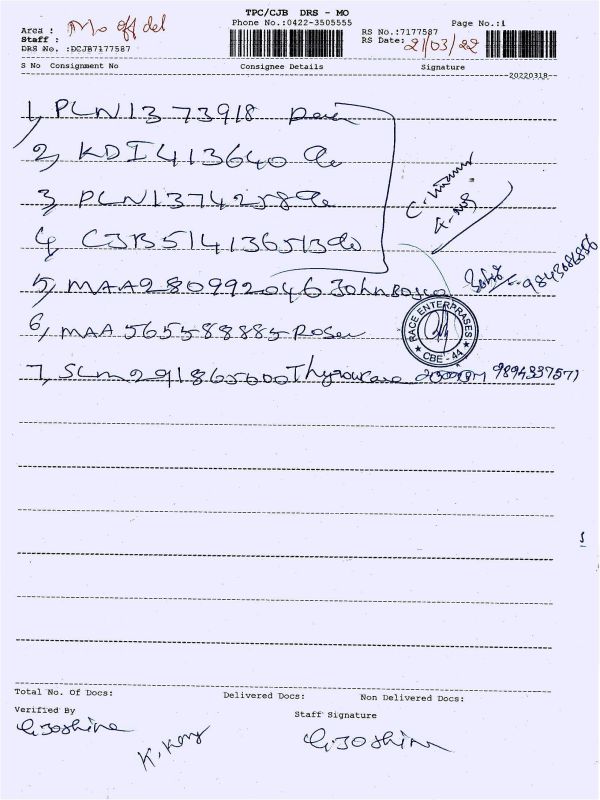 TPC/CJB DRS - MO
Phone No.:0422-3505555 Page No.:1
Area : Mo off del
RS No.:7177587
Staff :
RS Date: 21/03/22
DRS No. :DCJB7177587
S No Consignment No Consignee Details Signature
20220318
1, PLN1373918
2, KDI413640
3, PLN1374258
4, CJB514136513
5, MAA280992046 John Bosco 9843686856
6, MAA565588885 Rosen
RACE ENTERPRASES
CBE - 44
7, SLM291865600 Thyrocare 9894337571
Total No. Of Docs: Delivered Docs: Non Delivered Docs:
Verified By Staff Signature
G. Joshina G. Joshina